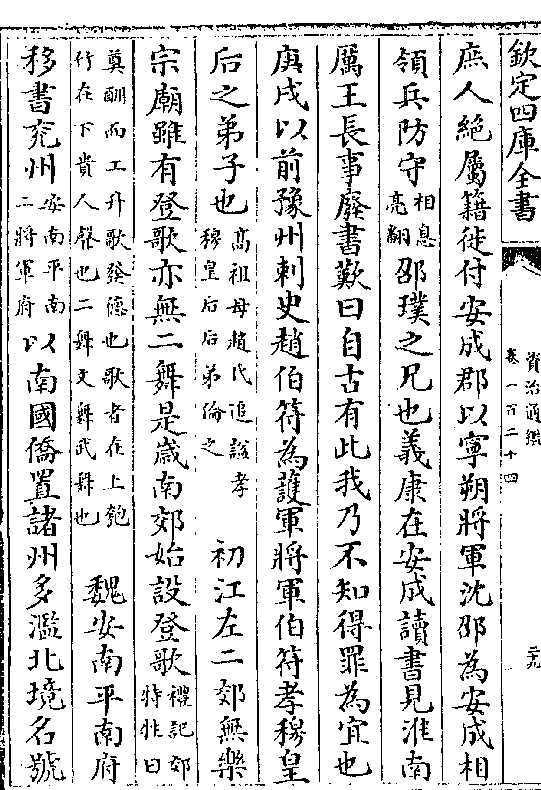 欽定四庫全書
資治通鑑
卷一百二十四
二十九
庶人絕屬籍徙付安成郡以寧朔將軍沈邵為安成相
領兵防守相息亮翻邵璞之兄也義康在安成讀書見淮南
厲王長事廢書歎曰自古有此我乃不知得罪為宜也
庚戌以前豫州刺史趙伯符為護軍將軍伯符孝穆皇
后之弟子也高祖母趙氏追諡孝穆皇后后弟倫之 初江左二郊無樂
宗廟雖有登歌亦無二舞是歲南郊始設登歌禮記郊特牲曰
奠酬而工升歌發德也歌者在上匏竹在下貴人聲也二舞文舞武舞也 魏安南平南府
移書兗州安南平南二將軍府以南國僑置諸州多濫北境名號